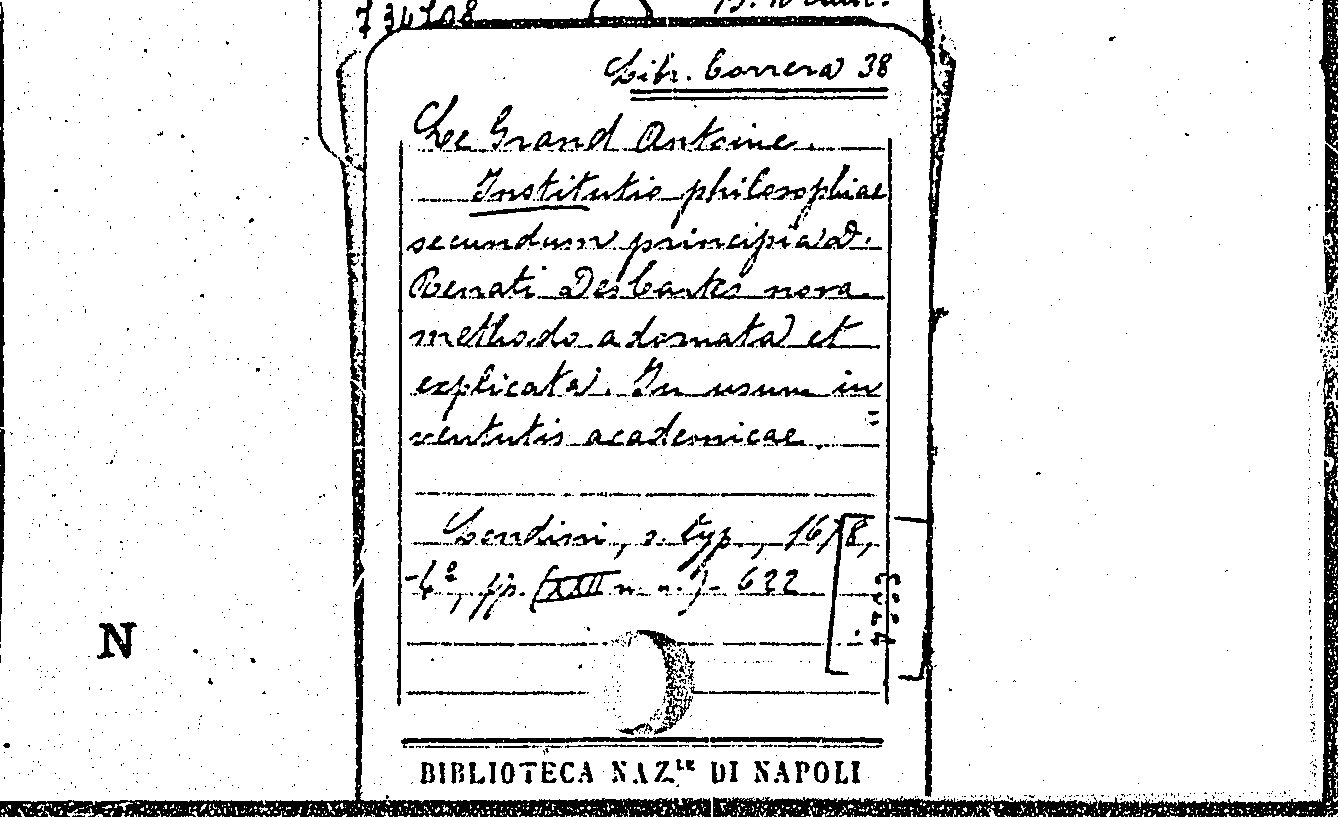 734708
Lib. Correra 38
Le Grand Antoine.
Institutio philosophiae
secundum principia D.
Renati DesCartes nova
methodo adornata et
explicata. In usum iu
ventutis academicae.
Londini, s. typ., 1678,
4º, pp. (XXII n. n.) - 622
BIBLIOTECA NAZ.LE DI NAPOLI
N